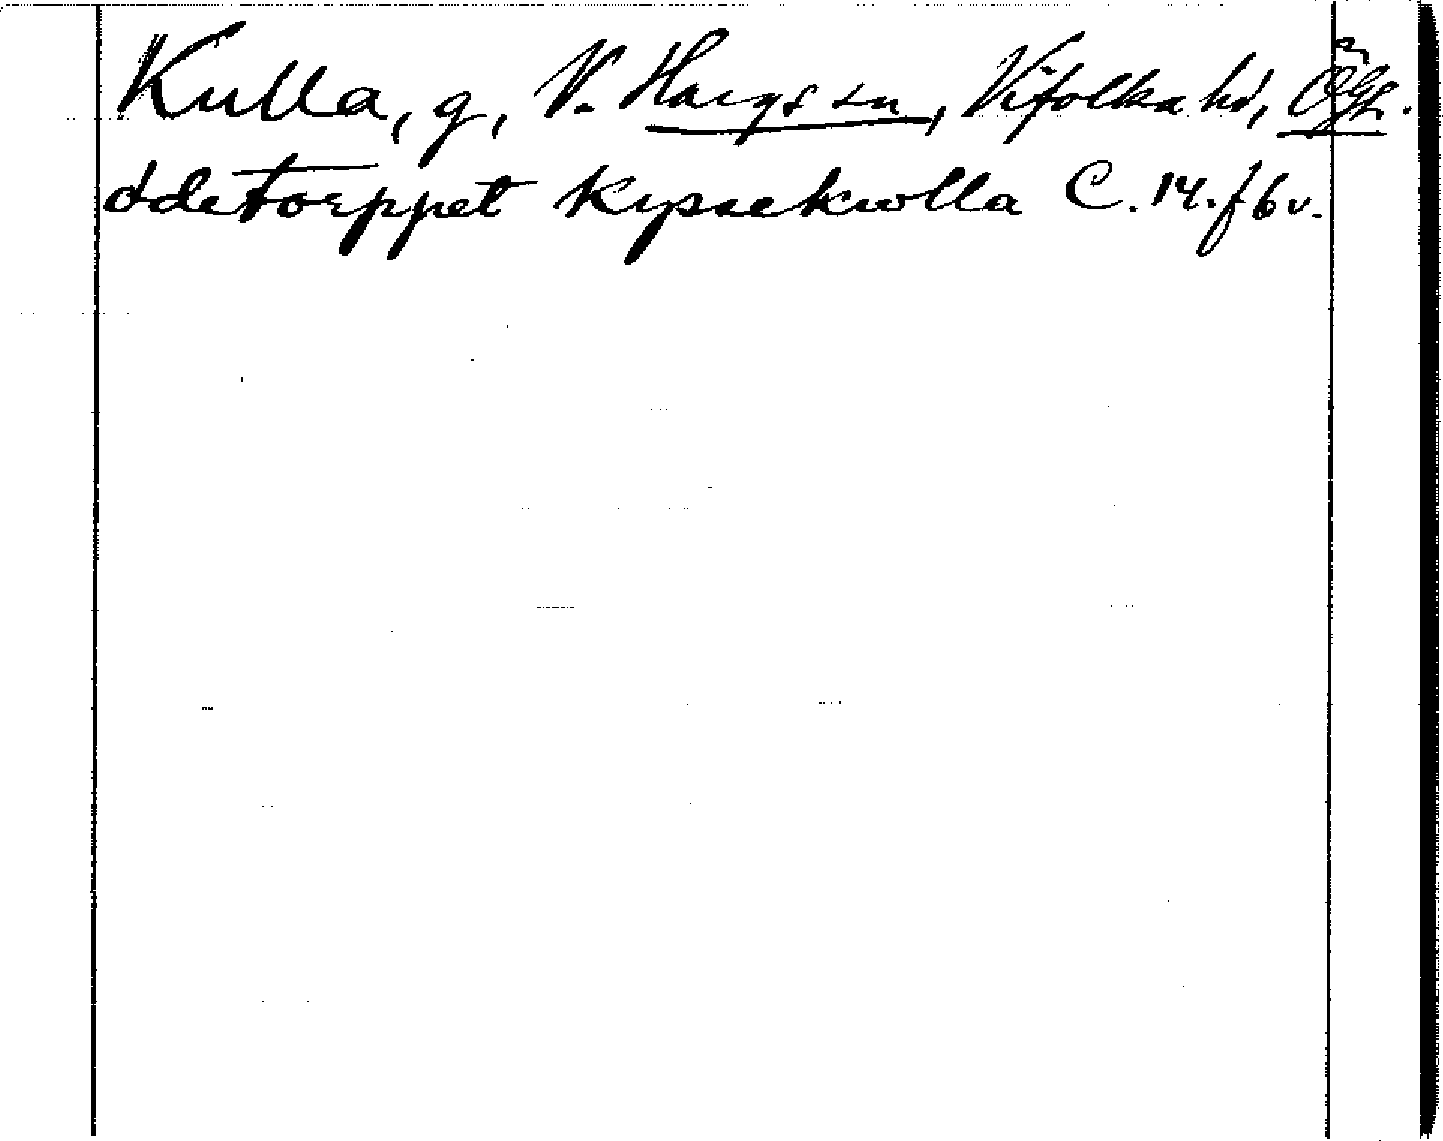 Kulla, g, V. Hargs sn, Vifolka hd, Ögtl.
ödetorppet Kyssekwlla C. 14. f 6 v.